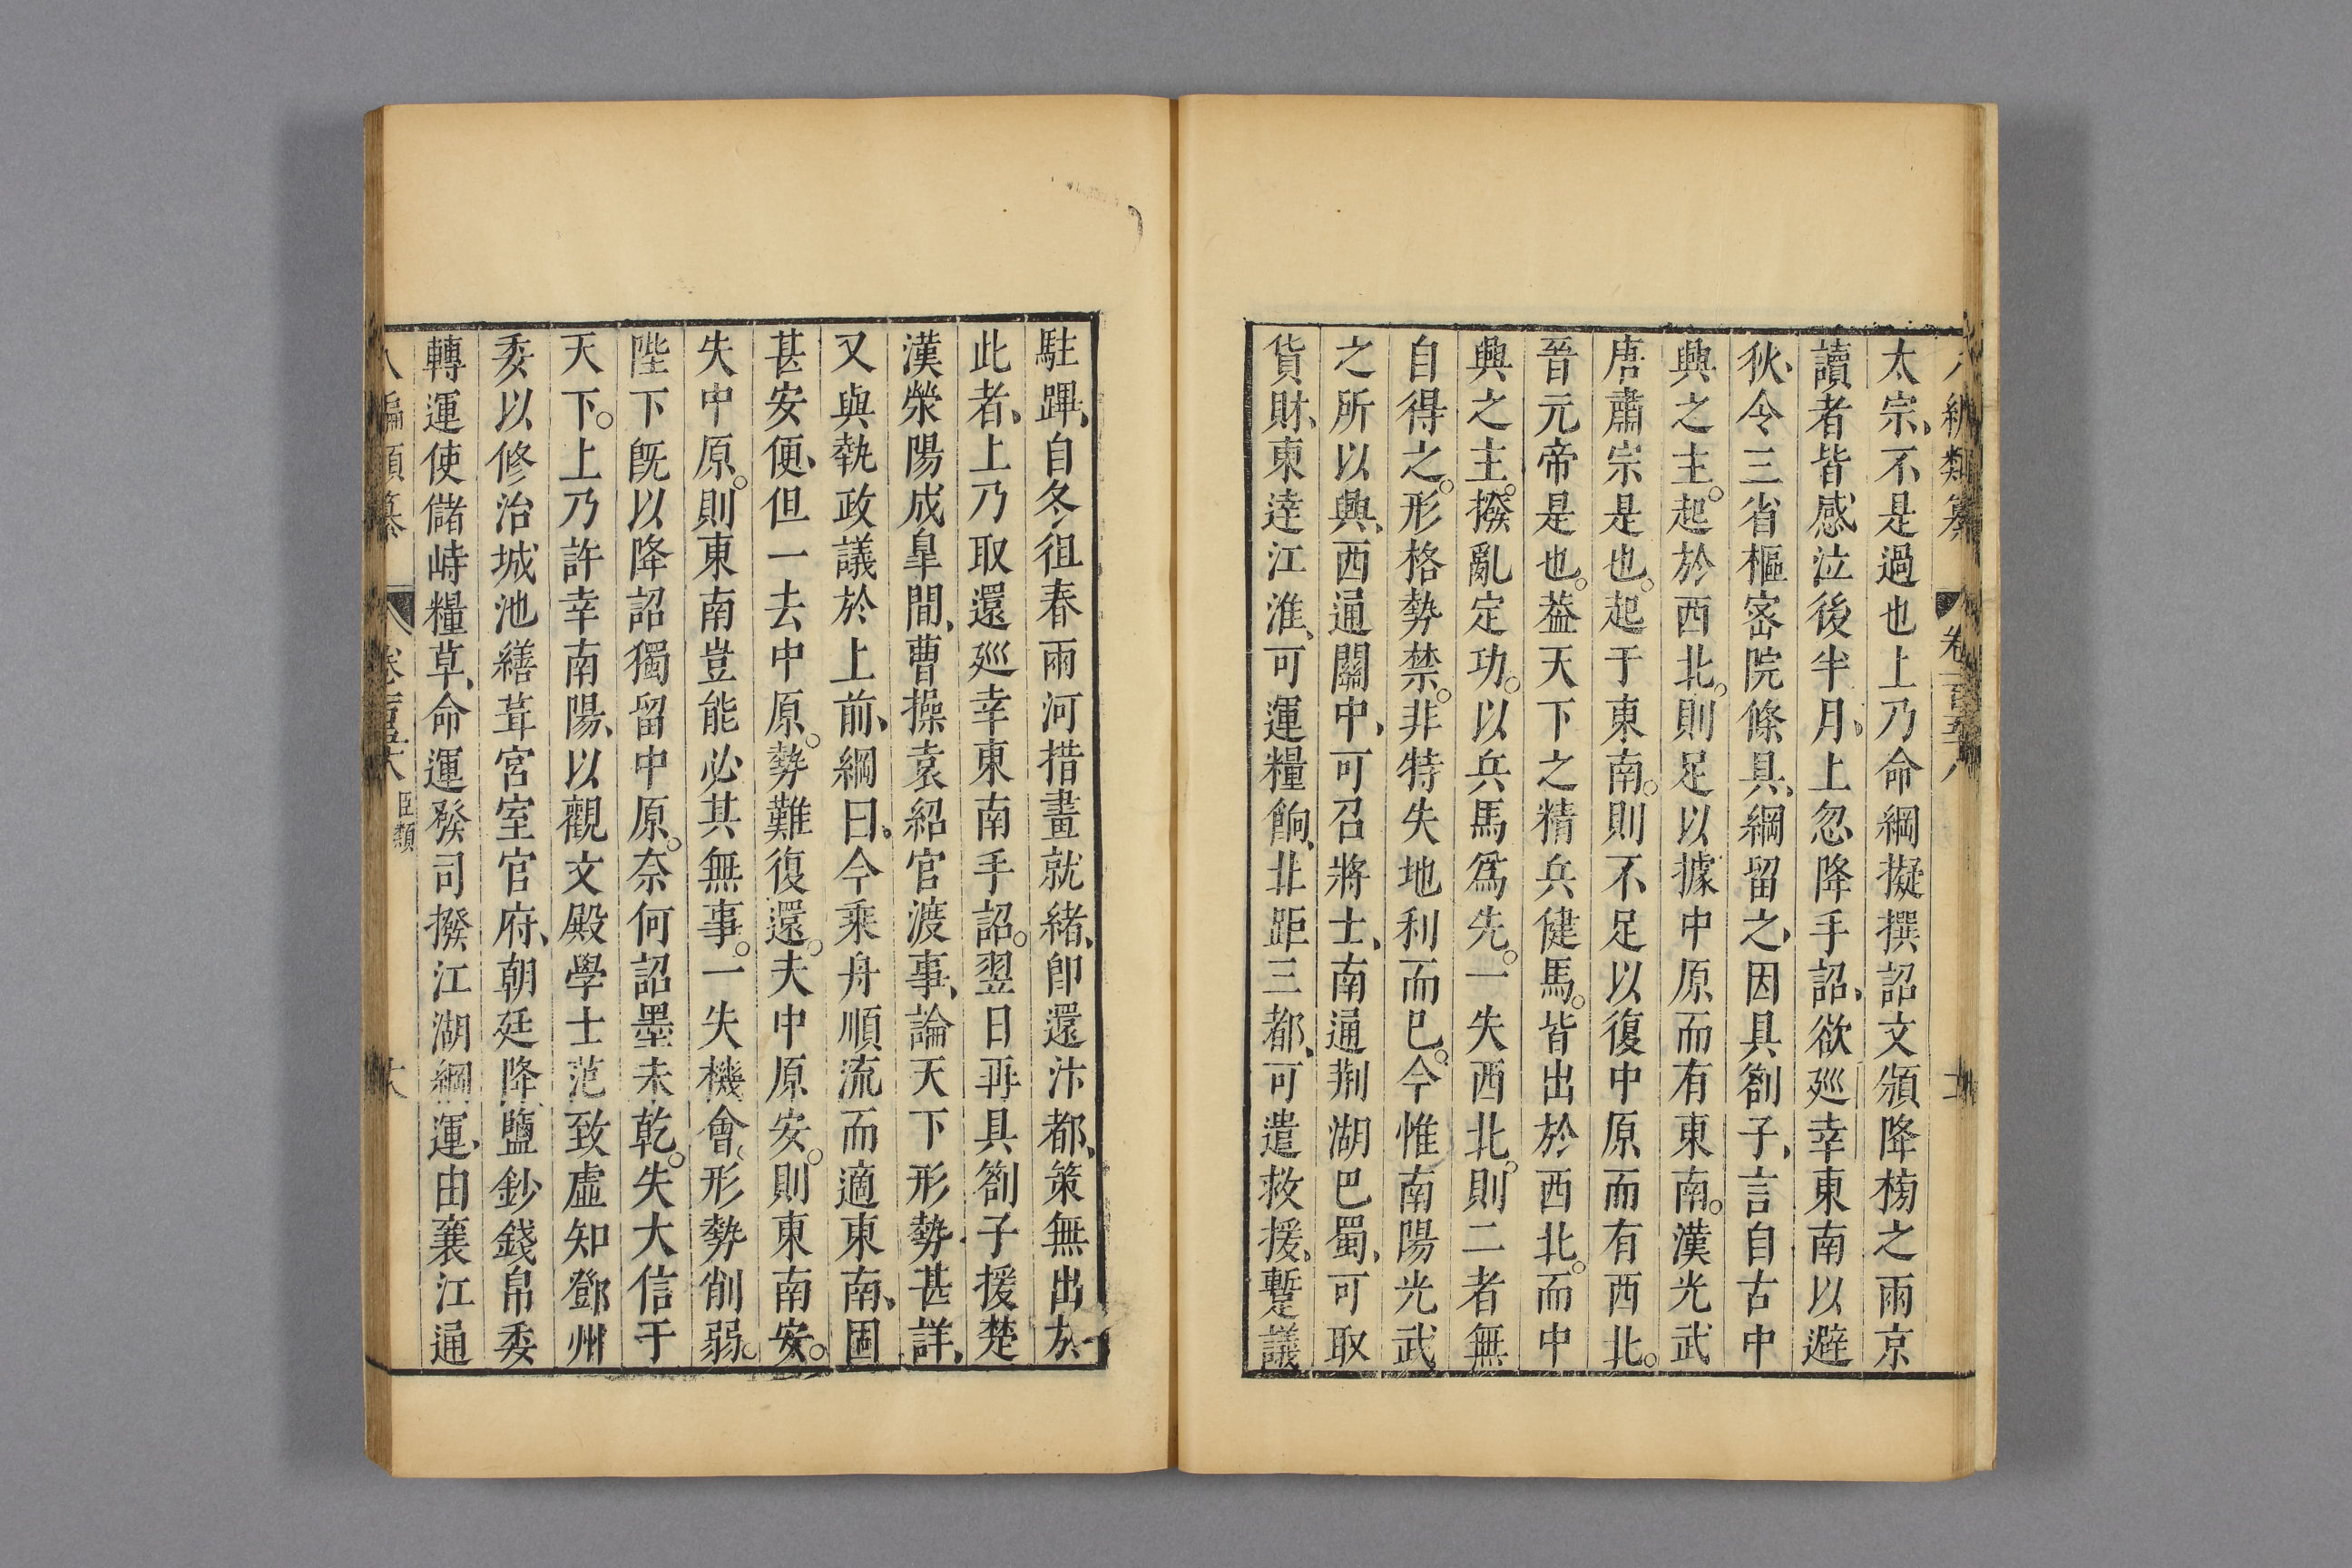 太宗、不是過也上乃命綱擬撰詔文頒降榜之兩京
讀者皆感泣後半月、上忽降手詔、欲廵幸東南以避
狄、令三省樞密院條具、綱留之、因具劄子、言自古中
興之主。起於西北。則足以據中原而有東南。漢光武
唐肅宗是也。起于東南。則不足以復中原而有西北。
晉元帝是也。葢天下之精兵健馬。皆出於西北。而中
興之主。撥亂定功。以兵馬爲先。一失西北。則二者無
自得之。形格勢禁。非特失地利而已。今惟南陽光武
之所以興、西通關中、可召將士、南通荆湖巴蜀、可取
貨財、東達江淮、可運糧餉、北距三都、可遣救援、蹔議
駐蹕、自冬徂春兩河措畫就緒、卽還汴都、策無出於
此者、上乃取還廵幸東南手詔。翌日再具劄子援楚
漢滎陽成臯間、曹操袁紹官渡事、論天下形勢甚詳、
又與執政議於上前、綱曰、今乘舟順流而適東南、固
甚安便、但一去中原。勢難復還。夫中原安。則東南安。
失中原。則東南豈能必其無事。一失機會。形勢削弱。
陛下旣以降詔獨留中原。奈何詔墨未乾。失大信于
天下。上乃許幸南陽、以觀文殿學士范致虛知鄧州
委以修治城池繕葺宮室官府、朝廷降鹽鈔錢帛委
轉運使儲峙糧草、命運發司撥江湖綱運、由襄江通
八編類纂 卷二百五十八 臣類